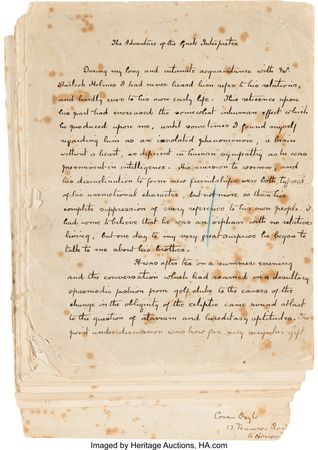 The Adventure of the Greek Interpreter
During my long and intimate acquaintance with Mr
Sherlock Holmes I had never heard him refer to his relations,
and hardly ever to his own early life. This reticence upon
his part had increased the somewhat inhuman effect which
he produced upon me, until sometimes I found myself
regarding him as an isolated phenomenon, a brain
without a heart, as deficient in human sympathy as he was
preeminent in intelligence. His aversion to women, and
his disinclination to form new friendships were both typical
of his unemotional character, but not more so than his
complete suppression of every reference to his own people. I
had come to believe that he was an orphan with no relatives
living, but one day to my very great surprise he began to
talk to me about his brother.
It was after tea on a summer evening
and the conversation which had roamed in a desultory
spasmodic fashion from golf clubs to the causes of the
change in the obliquity of the ecliptic came round at last
to the question of atavism and hereditary aptitudes. The
point under discussion was how far any singular gift
Conan Doyle
12 Tennison Road
S. Norwood
Imaged by Heritage Auctions, HA.com